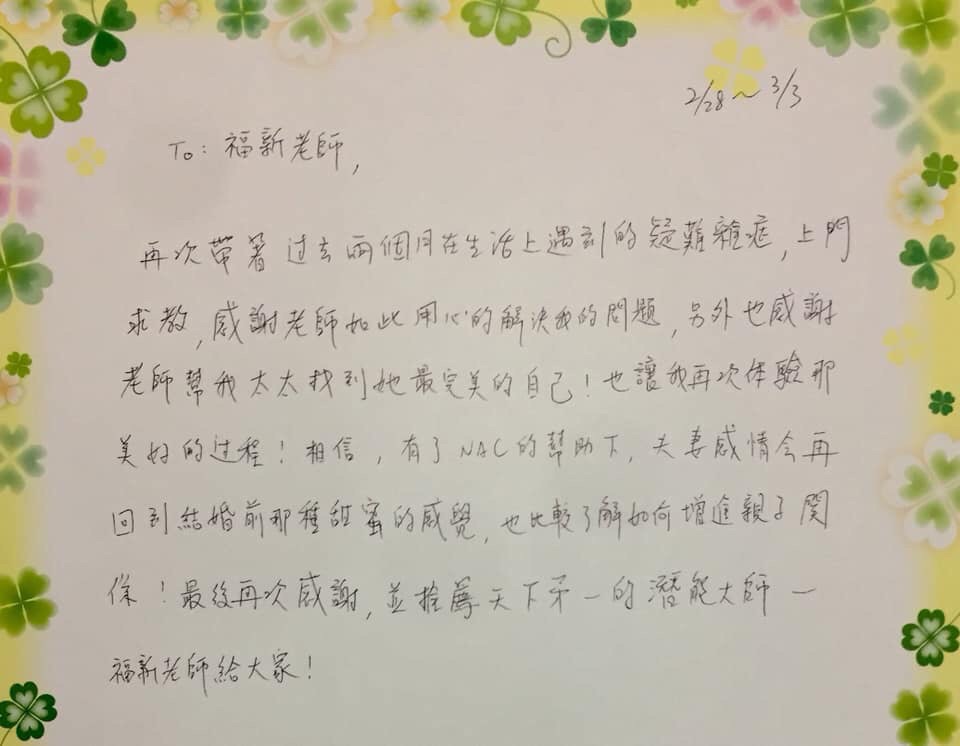 2/28～3/3
To：福新老師，
再次帶著过去兩個月在生活上遇到的疑難雜症，上門
求教，感謝老師如此用心的解決我的問題，另外也感謝
老師幫我太太找到她最完美的自己！也讓我再次体驗那
美好的过程！相信，有了NAC的幫助下，夫妻感情会再
回到結婚前那種甜蜜的感覺，也比較了解如何增進親子関
係！最後再次感謝，並推薦天下第一的潛能大師一
福新老師給大家！